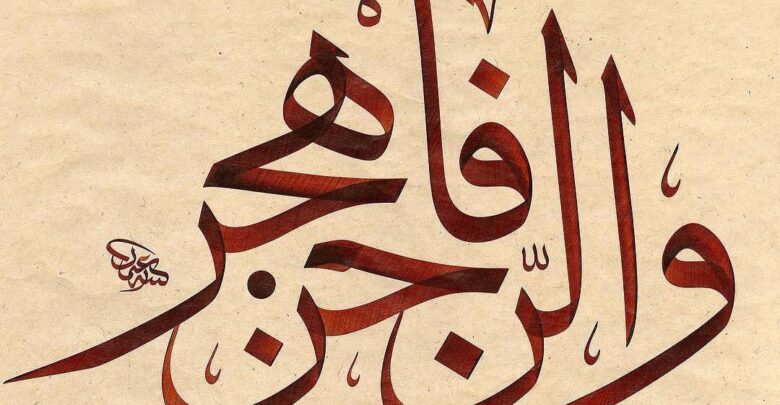 والرّجز فاهجر